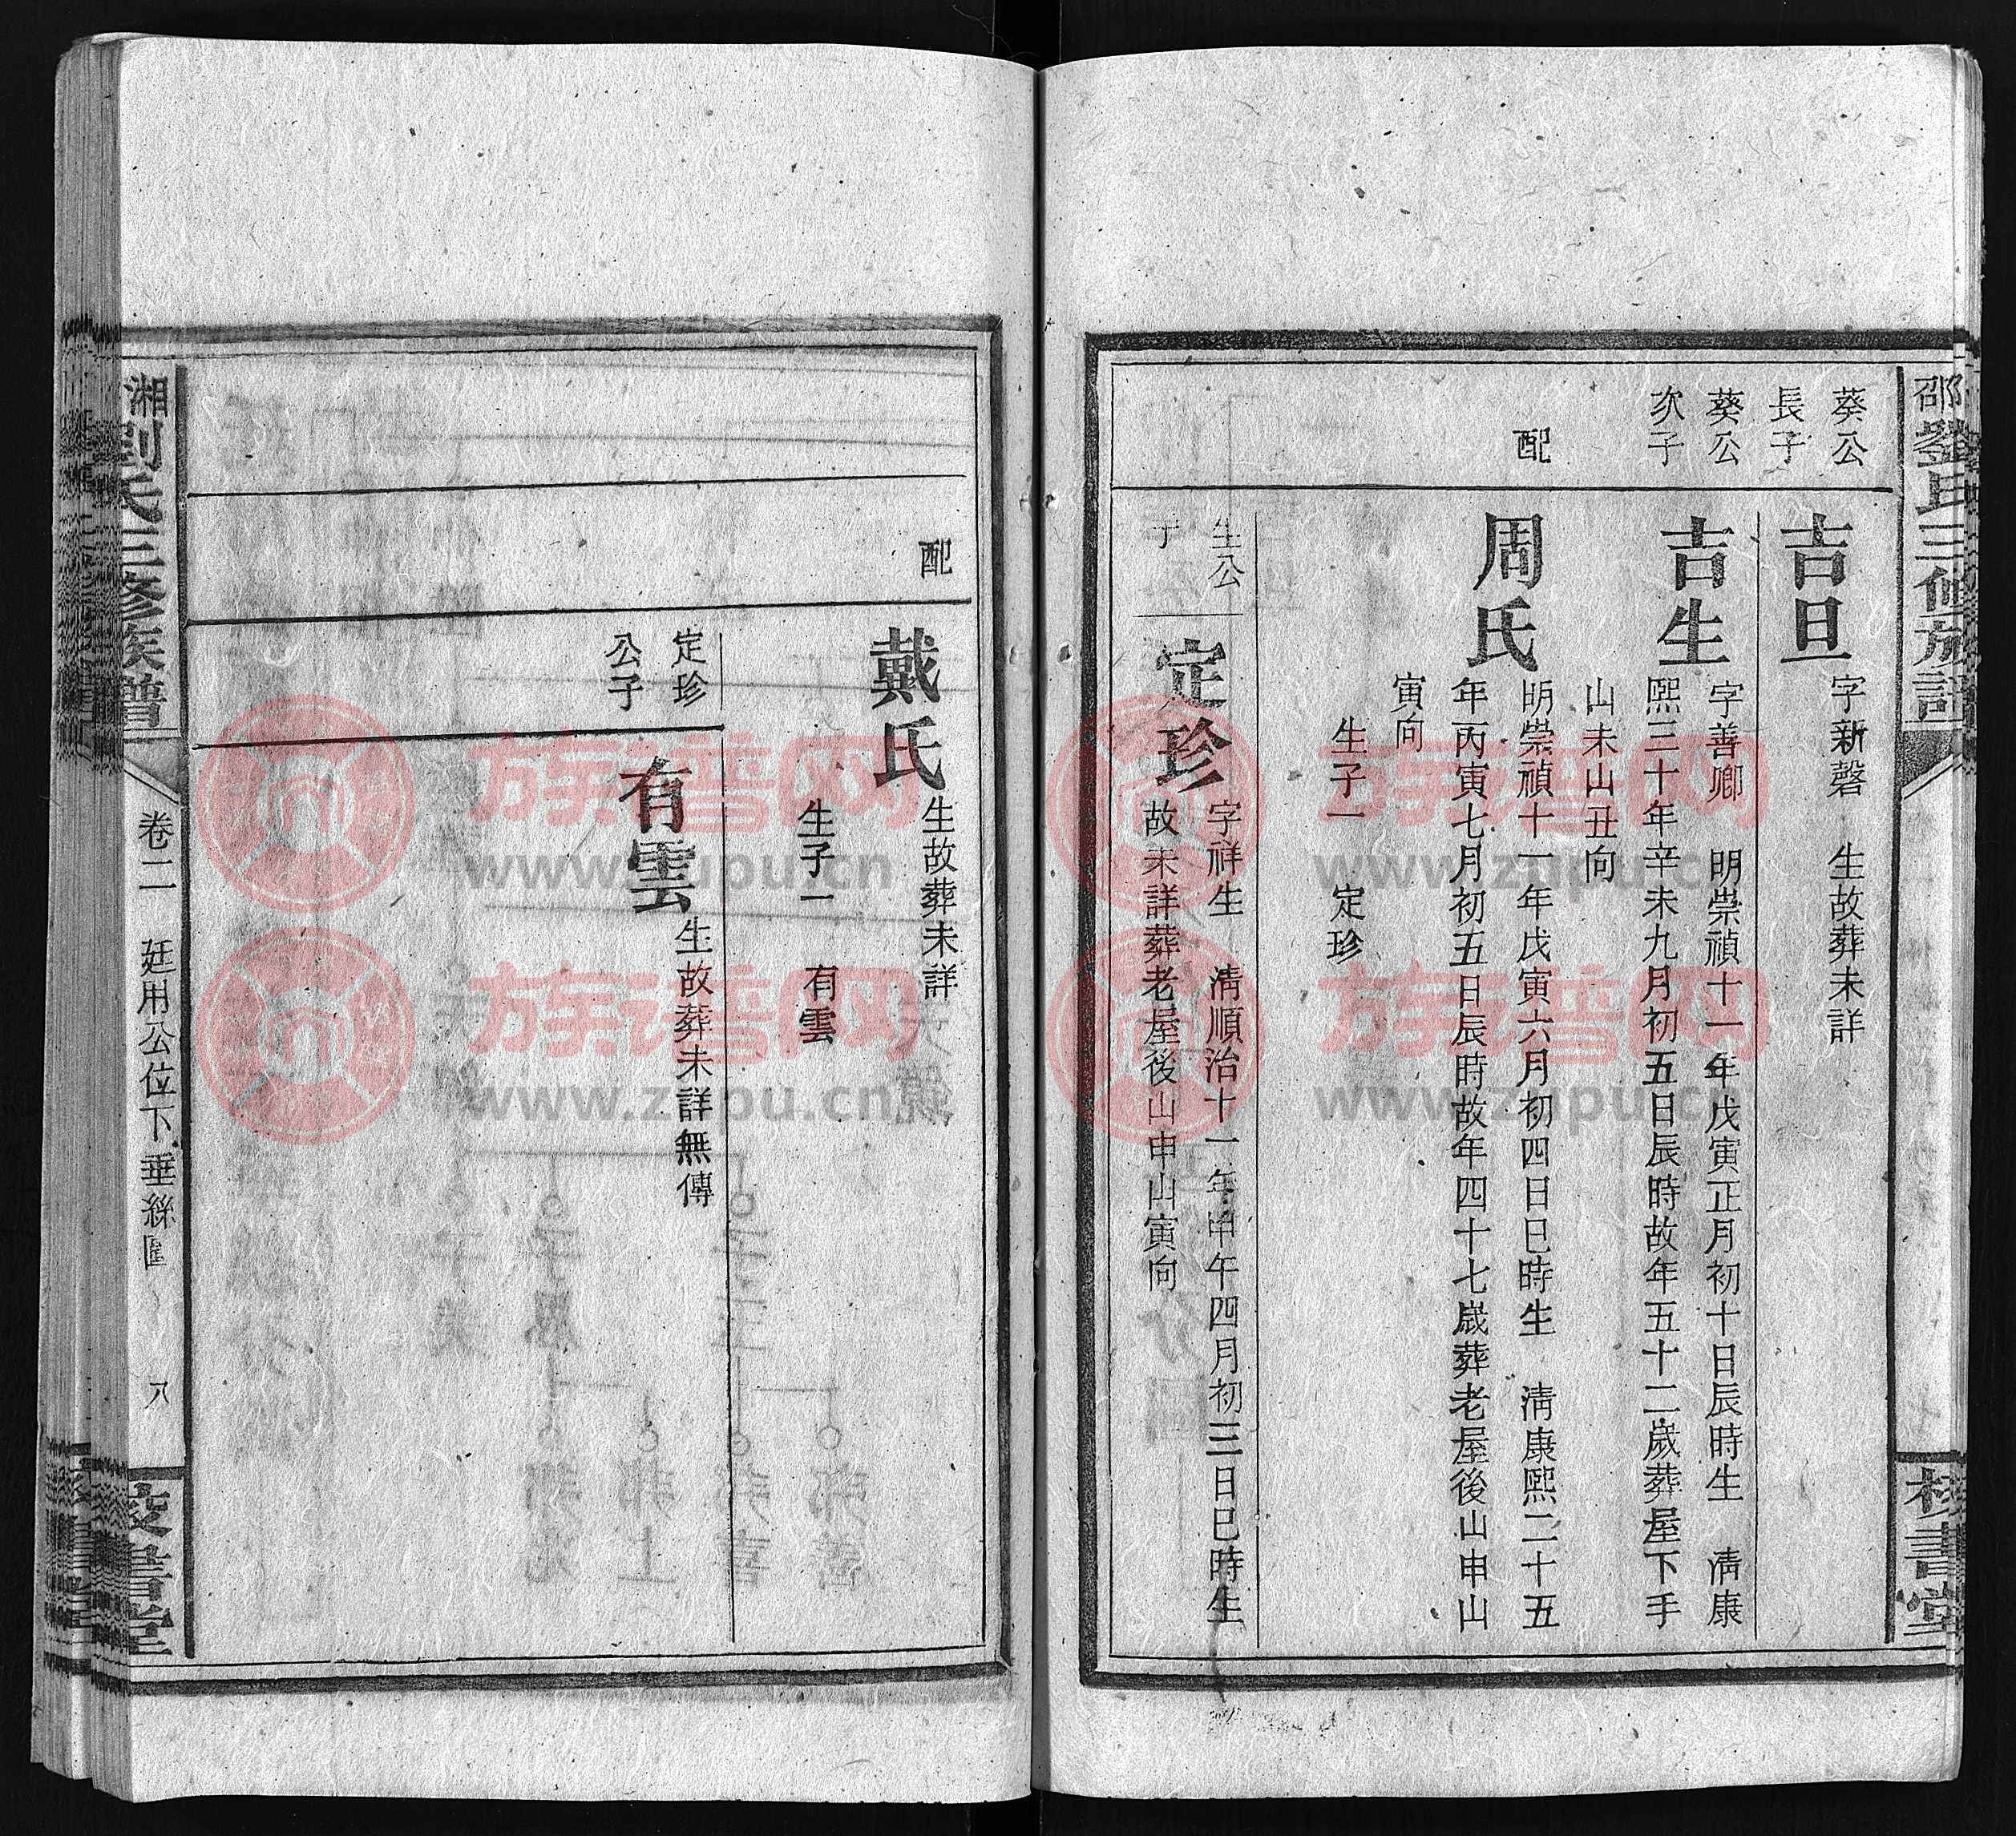 葵公
長子
吉旦
字新磬 生故葬未詳
葵公
次子
吉生
字善卿 明崇禎十一年戊寅正月初十日辰時生 清康
熙三十年辛未九月初五日辰時故年五十二歲葬屋下手
山未山丑向
配
周氏
明崇禎十一年戊寅六月初四日巳時生 清康熙二十五
年丙寅七月初五日辰時故年四十七歲葬老屋後山申山
寅向
生子一 定珍
生公
子
定珍
字祥生 清順治十一年甲午四月初三日巳時生
故未詳葬老屋後山申山寅向
校書堂
配
戴氏
生故葬未詳
生子一 有雲
定珍
公子
有雲
生故葬未詳無傳
湘劉氏三修族譜
卷二 廷用公位下垂絲圖 八
校書堂
族谱网
www.zupu.cn
族谱网
www.zupu.cn
族谱网
www.zupu.cn
族谱网
www.zupu.cn